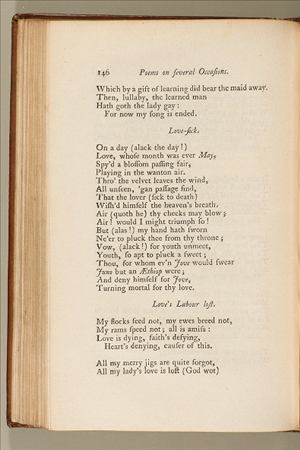 146 Poems on ſeveral Occaſions.
Which by a gift of learning did bear the maid away.
Then, lullaby, the learned man
Hath goth the lady gay:
For now my ſong is ended.
Love-ſick.
On a day (alack the day!)
Love, whoſe month was ever May,
Spy'd a bloſſom paſſing fair,
Playing in the wanton air.
Thro' the velvet leaves the wind,
All unſeen, 'gan paſſage find,
That the lover (ſick to death)
Wiſh'd himſelf the heaven's breath.
Air (quoth he) thy cheeks may blow;
Air! would I might triumph ſo!
But (alas!) my hand hath ſworn
Ne'er to pluck thee from thy throne;
Vow, (alack!) for youth unmeet,
Youth, ſo apt to pluck a ſweet;
Thou, for whom ev'n Jove would ſwear
Juno but an Æthiop were;
And deny himſelf for Jove,
Turning mortal for thy love.
Love's Labour loſt.
My flocks feed not, my ewes breed not,
My rams ſpeed not; all is amiſs:
Love is dying, faith's defying,
Heart's denying, cauſer of this.
All my merry jigs are quite forgot,
All my lady's love is loſt (God wot)